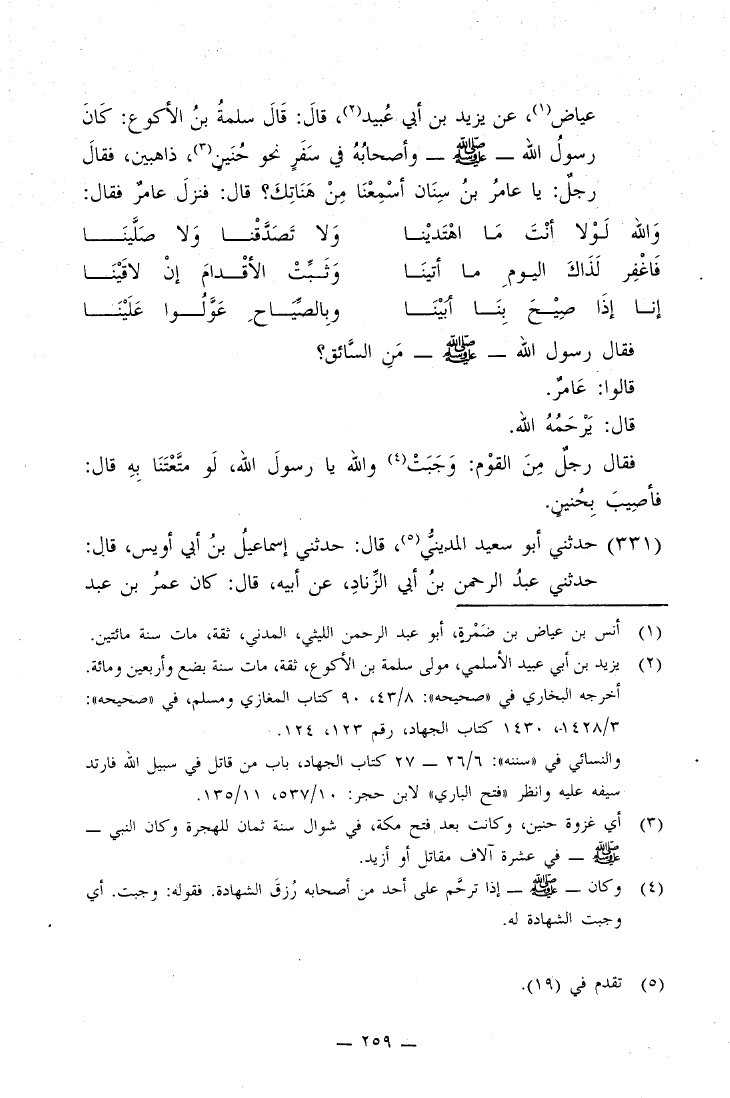 عياض(١)، عن يزيد بن أبي عُبيد(٢)، قالَ: قَالَ سلمةُ بنُ الأكوع: كَانَ
رسولُ الله — ﷺ — وأصحابُهُ في سَفَرٍ نحو حُنَينٍ(٣)، ذاهبين، فقالَ
رجلٌ: يا عامرُ بنُ سِنَان أسْمِعْنَا مِنْ هَنَاتِكَ؟ قال: فنزلَ عامرٌ فقال:
وَالله لَـوْلا أنْتَ مَـا اهْتَدَيْنـا ولا تَصَدَّقْنـا ولا صَلَّينَـــا
فَاغْفِر لَذَاكَ اليومِ ما أتينَـا وَثَـبِّتْ الأقْـدامَ إنْ لاقَيْنَـا
إنـا إذَا صِيْـحَ بِنَـا أبَيْنَـا وبِالصِّيَـاحِ عَوَّلُـوا عَلَيْنَـــا
فقال رسول الله — ﷺ — مَنِ السَّائق؟
قالوا: عَامرٌ.
قال: يَرْحَمُهُ الله.
فقال رجلٌ مِنَ القوْم: وَجَبَتْ(٤) والله يا رسولَ الله، لَو متَّعْتَنَا بِهِ قال:
فأُصِيبَ بِحُنينٍ.
(٣٣١) حدثني أبو سعيد المدينيُّ(٥)، قال: حدثني إسماعيلُ بنُ أبي أويس، قال:
حدثني عبدُ الرحمن بنُ أبي الزِّنادِ، عن أبيه، قال: كان عمرُ بن عبد
(١) أنس بن عياض بن ضَمْرة، أبو عبد الرحمن الليثي، المدني، ثقة، مات سنة مائتين.
(٢) يزيد بن أبي عبيد الأسلمي، مولى سلمة بن الأكوع، ثقة، مات سنة بضع وأربعين ومائة.
أخرجه البخاري في «صحيحه»: ٤٣/٨، ٩٠ كتاب المغازي ومسلم، في «صحيحه»:
١٤٢٨/٣، ١٤٣٠ كتاب الجهاد، رقم ١٢٣، ١٢٤.
والنسائي في «سننه»: ٢٦/٦ — ٢٧ كتاب الجهاد، باب من قاتل في سبيل الله فارتد
سيفه عليه وانظر «فتح الباري» لابن حجر: ٥٣٧/١٠، ١٣٥/١١.
(٣) أي غزوة حنين، وكانت بعد فتح مكة، في شوال سنة ثمان للهجرة وكان النبي —
ﷺ — في عشرة آلاف مقاتل أو أزيد.
(٤) وكان — ﷺ — إذا ترحَّم على أحد من أصحابه رُزقَ الشهادة. فقوله: وجبت. أي
وجبت الشهادة له.
(٥) تقدم في (١٩).
— ٢٥٩ —